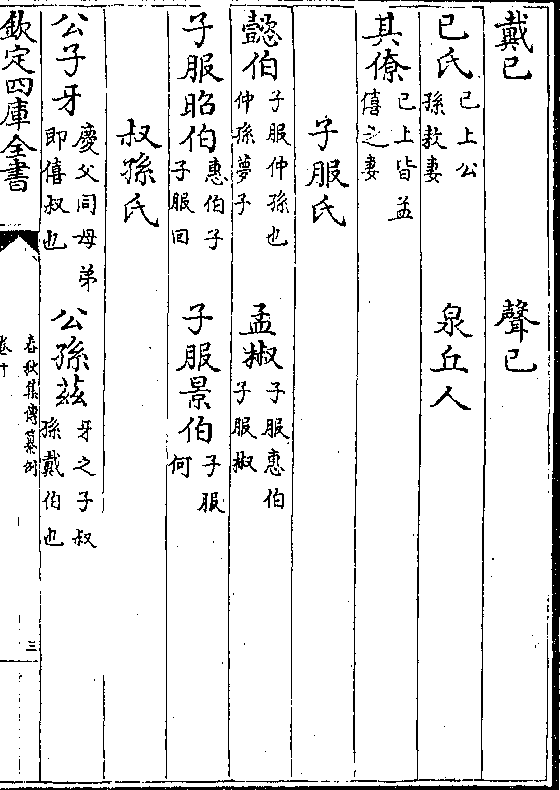 戴已　聲已
已氏已上公孫敖妻　泉丘人
其僚已上皆孟僖之妻
子服氏
懿伯子服仲孫也仲孫蔑子　孟椒子服惠伯子服椒
子服昭伯惠伯子子服回　子服景伯子服何
叔孫氏
公子牙慶父同母弟即僖叔也　公孫茲牙之子叔孫戴伯也
欽定四庫全書
春秋集傳纂例
卷十
三